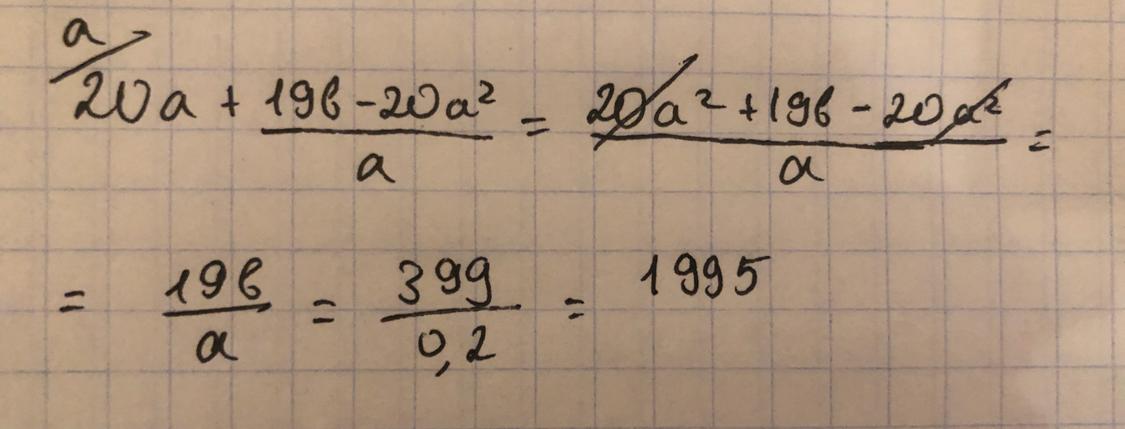 a
20a + \frac{19в - 20a²}{a} = \frac{20a² + 19в - 20a²}{a} =
= \frac{19в}{a} = \frac{399}{0,2} = 1995